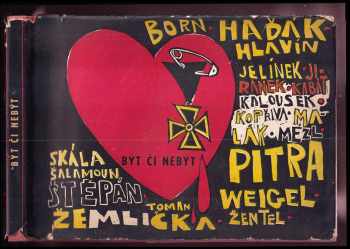 BÝT ČI NEBÝT
BORN·HAĎÁK
HLAVÍN
JELÍNEK·JI-
RÁNEK·KABÁT
KALOUSEK·
KOPŘIVA·MA-
LÁK·MEZL
PITRA
BÝT ČI NEBÝT
SKÁLA
ŠALAMOUN
ŠTĚPÁN
TOMAN
WEIGEL
ŽEMLIČKA·ŽENTEL·